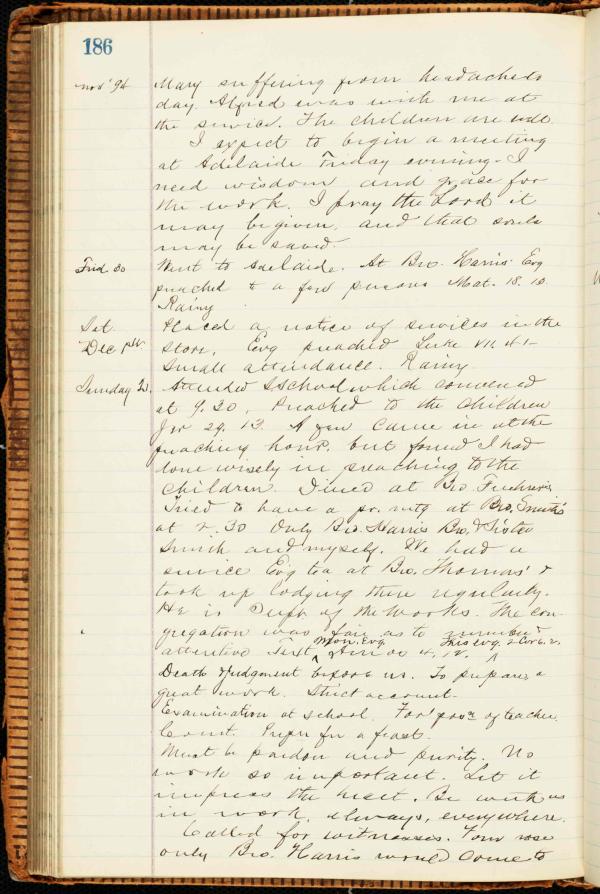 186
nov' 94 Mary suffering from headache to
day. Alfred was with me at
the service. The children are well.
I expect to begin a meeting
at Adelaide Friday evening. I
need wisdom and grace for
the work. I pray the Lord it
may be given, and that souls
may be saved.
Frid. 30 Went to Adelaide. At Bro. Harris' Evg
preached to a few persons Mat. 18. 10.
Rainy
Sat. Placed a notice of services in the
Dec 1st. store. Evg preached Luke VII. 41-
Small attendance. Rainy.
Sunday 2. Attended S School which convened
at 9.30. Preached to the children
Jer 29. 13. A few came in at the
preaching hour, but found I had
done wisely in preaching to the
children. Dined at Bro.
Tried to have a pr. mtg at Bro. Smith's
at 2.30 Only Bro. Harris Bro. & Sister
Smith and myself. We had a
service Evg tea at Bro. Thomas' &
took up lodging there regularly.
He is Supt of the works. The con-
gregation was fair as to number &
Mon. Evg This evg. 2 Cor 6. 2.
attentive Text Amos 4, 12.
Death & Judgment before us. To prepare, a
great work. Strict account.
Examination at school. For of teacher
Court. Prepn for a feast.
Must be pardon and purity. No
work so important. Let it
impress the heart. Be with us
in work, always, everywhere.
Called for witnesses. None rose
only Bro. Harris would come to